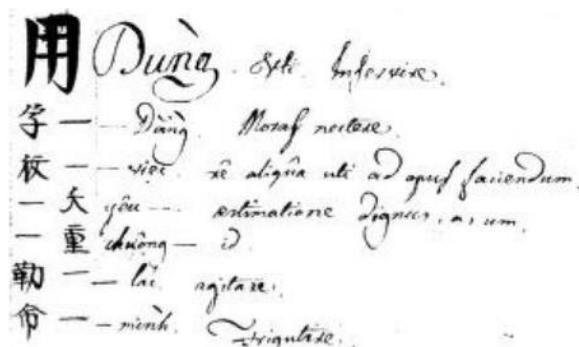 用 Dùng. Uti. Inservire.
孕 一 — Dằng. Moras nectere.
一 — việc. rê aliquâ uti ad opus faciendum.
一 夭 yêu — æstimatione dignus, a, um.
一 重 chuộng — id.
勒 一 — lắc. agitare.
命 一 — mình.